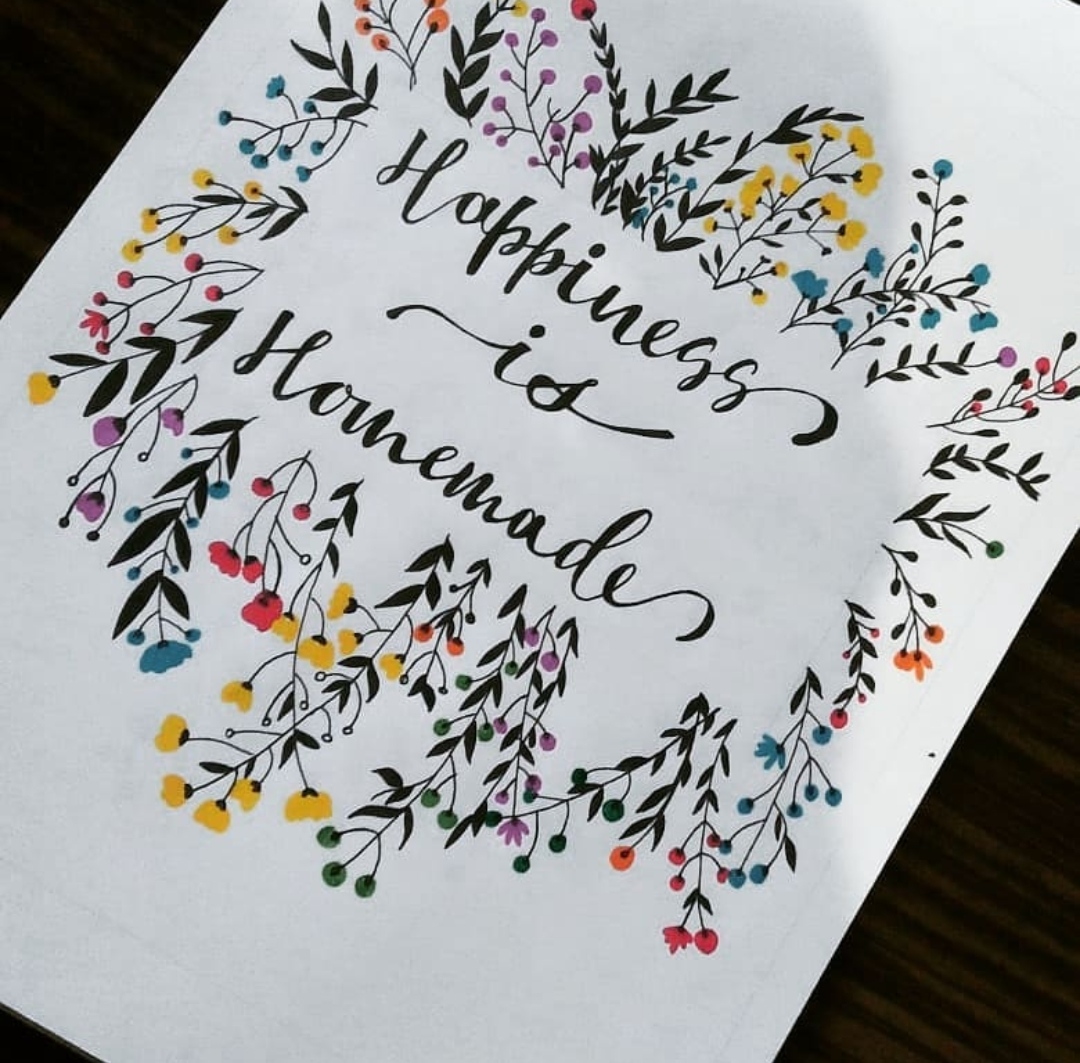 Happiness
is
Homemade